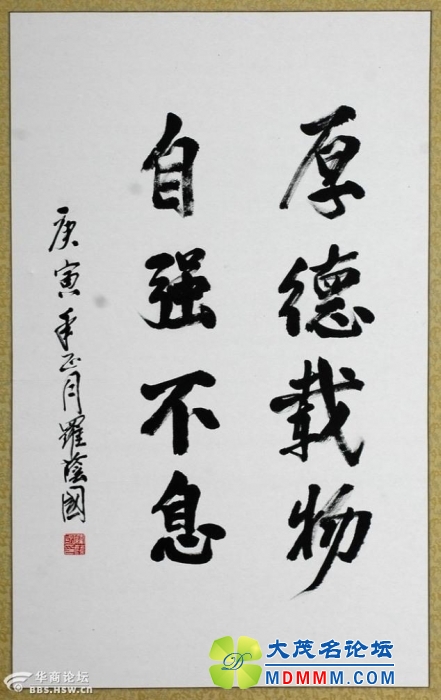 厚德载物
自强不息
庚寅年正月羅蔭國
大茂名论坛
MDMMM.COM
华商论坛
BBS.HSW.CN